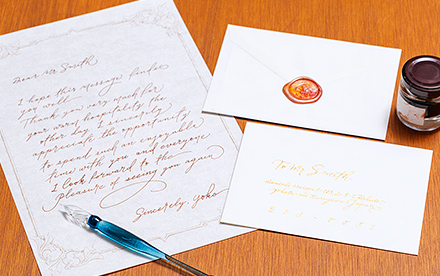 Dear Mr Smith
I hope this message finds
you well.
Thank you very much for
your warm hospitality the
other day. I sincerely
appreciate the opportunity
to spend such an enjoyable
time with you and everyone
I look forward to the
pleasure of seeing you again
Sincerely, Yoko
To Mr Smith